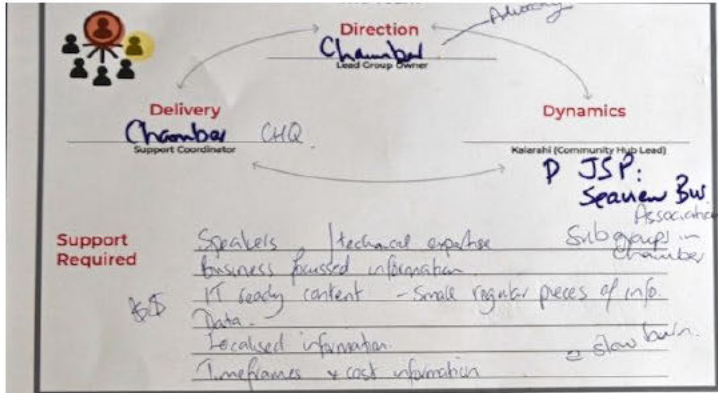 Advocacy
Direction
Chamber
Lead Group Owner
Delivery
Chamber CHQ
Support Coordinator
Dynamics
Kaiarahi (Community Hub Lead)
JSP:
Seaview Bus
Association
Support Required
Speakers / technical expertise
Subgroups in Chamber
Business focussed information
$$
IT ready content - small regular pieces of info.
Data.
Localised information.
slow burn.
Timeframes & cost information